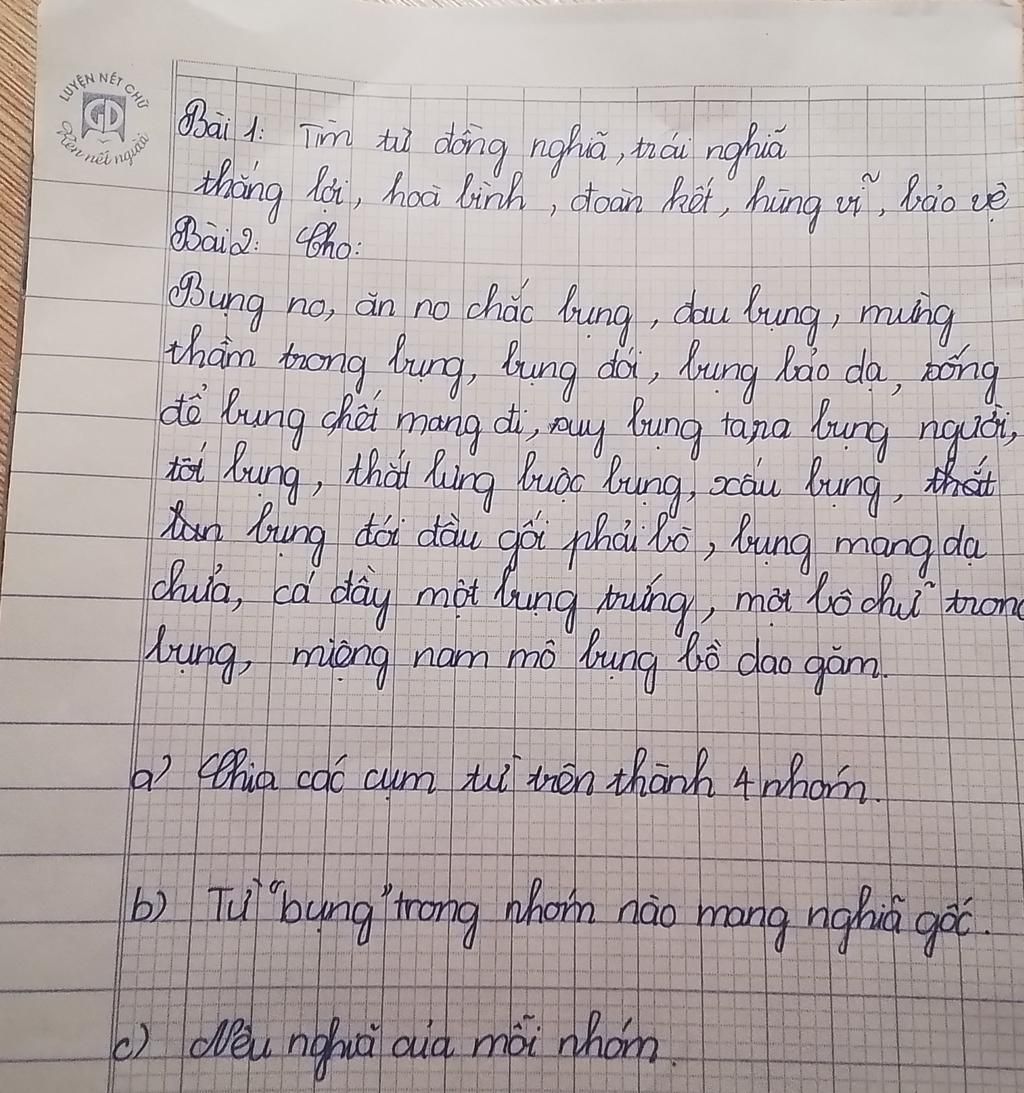 LUYỆN NÉT CHỮ
GD
Rèn nết người
Bài 1: Tìm từ đồng nghĩa, trái nghĩa
thắng lợi, hoà bình, đoàn kết, hùng vĩ, bảo vệ
Bài 2: Cho:
Bụng no, ăn no chắc bụng, đau bụng, mừng
thầm trong bụng, bụng đói, bụng bảo dạ, sống
để bụng chết mang đi, suy bụng ta ra bụng người,
tốt bụng, thắt lưng buộc bụng, xấu bụng,
bụng đói đầu gối phải bò, bụng mang dạ
chửa, cá đầy một bụng trứng, một bồ chữ tron
bụng, miệng nam mô bụng bồ dao găm.
a) Chia các cụm từ trên thành 4 nhóm.
b) Từ "bụng" trong nhóm nào mang nghĩa gốc.
c) Nêu nghĩa của mỗi nhóm.